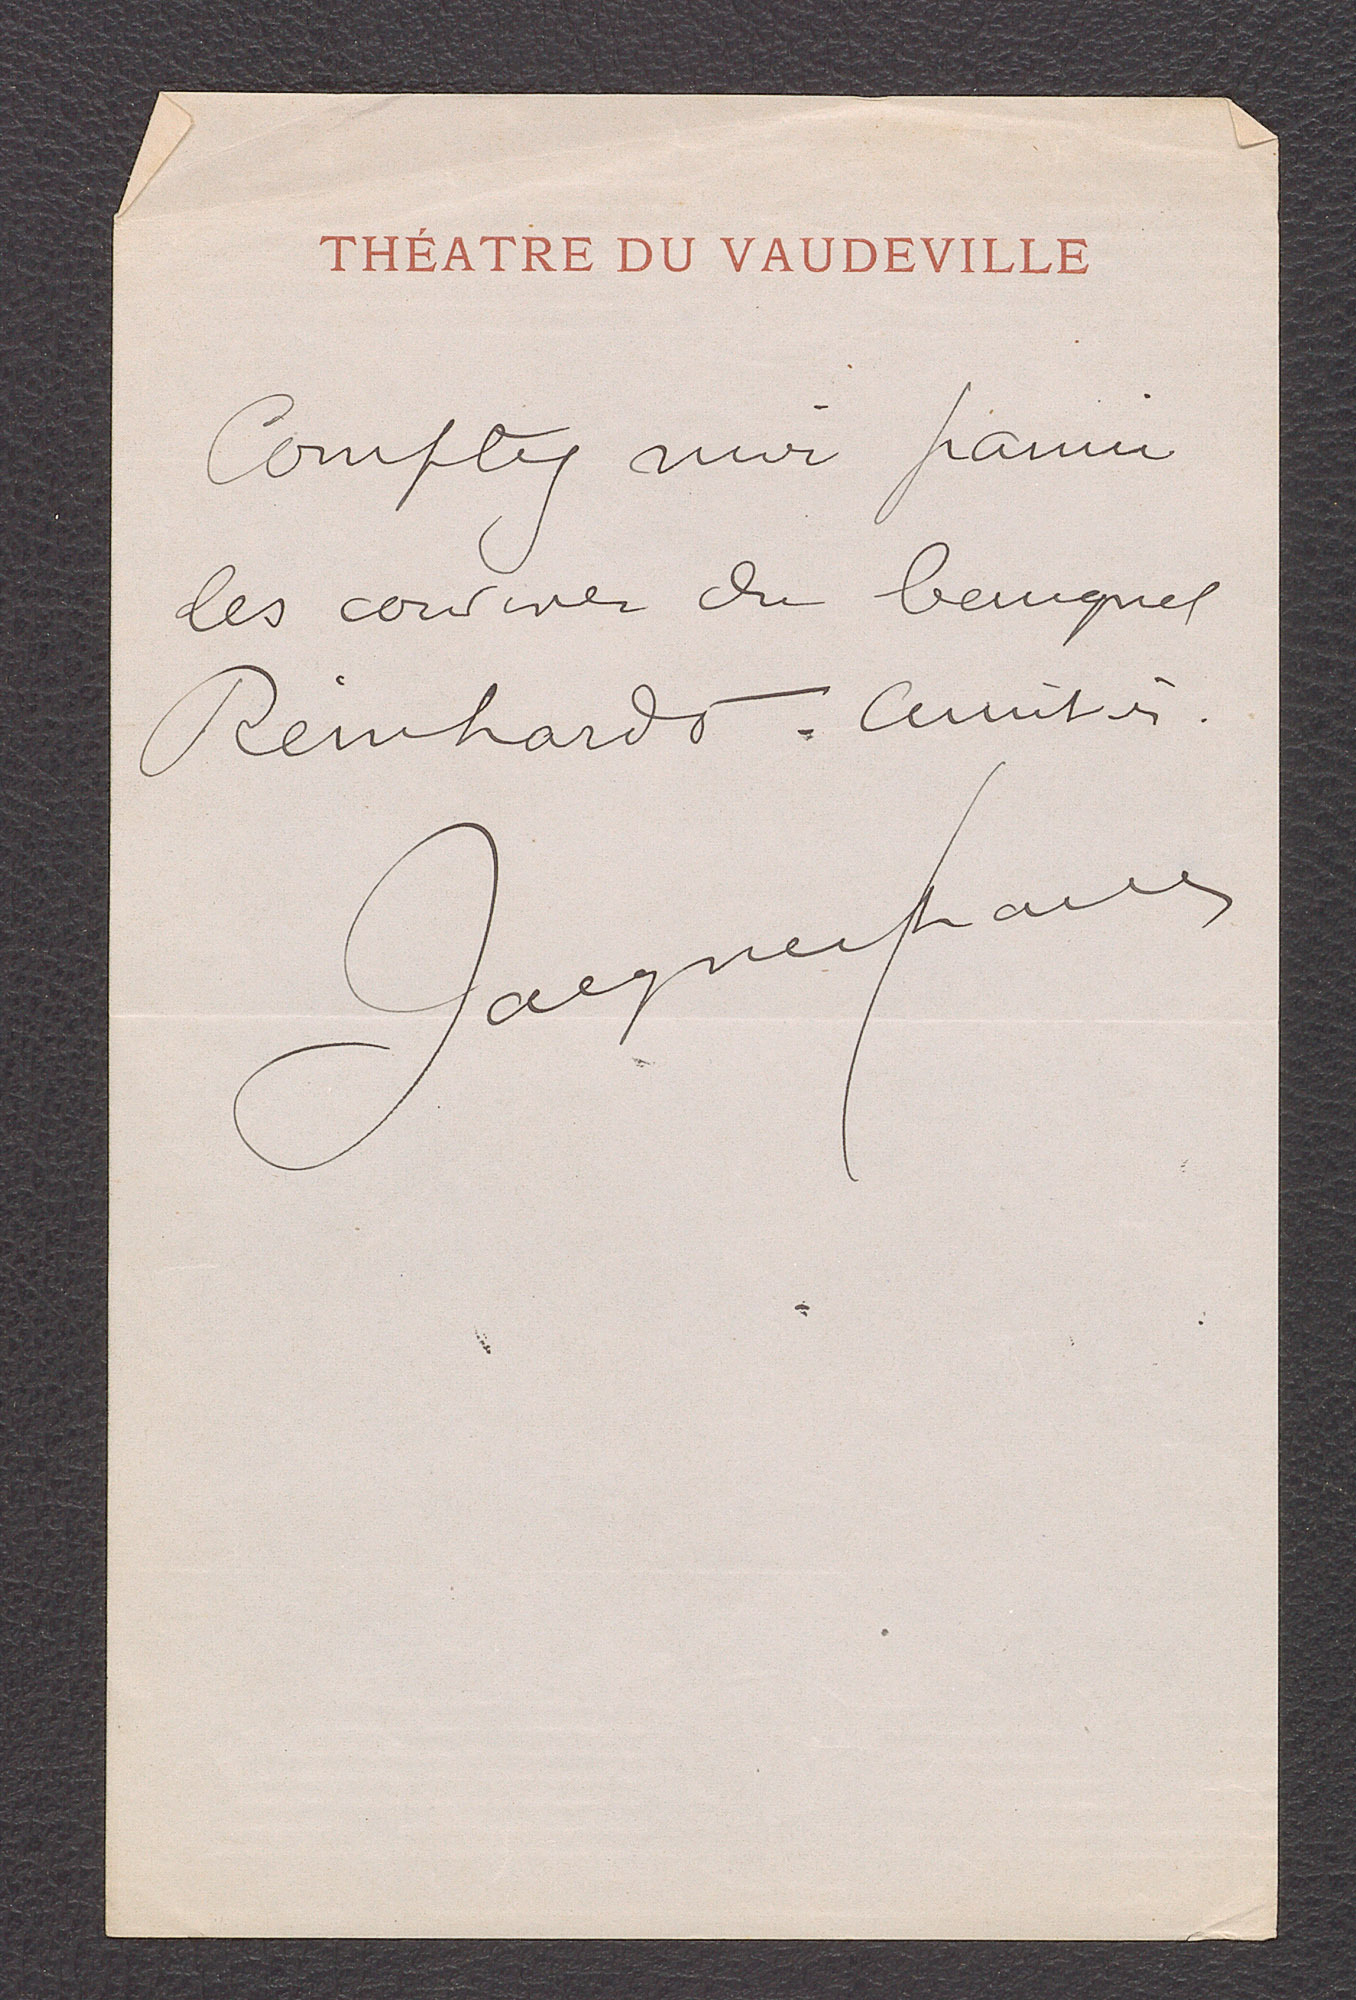 THÉATRE DU VAUDEVILLE
Comptez moi parmi
les convives du banquet
Reinhardt. Amitiés.